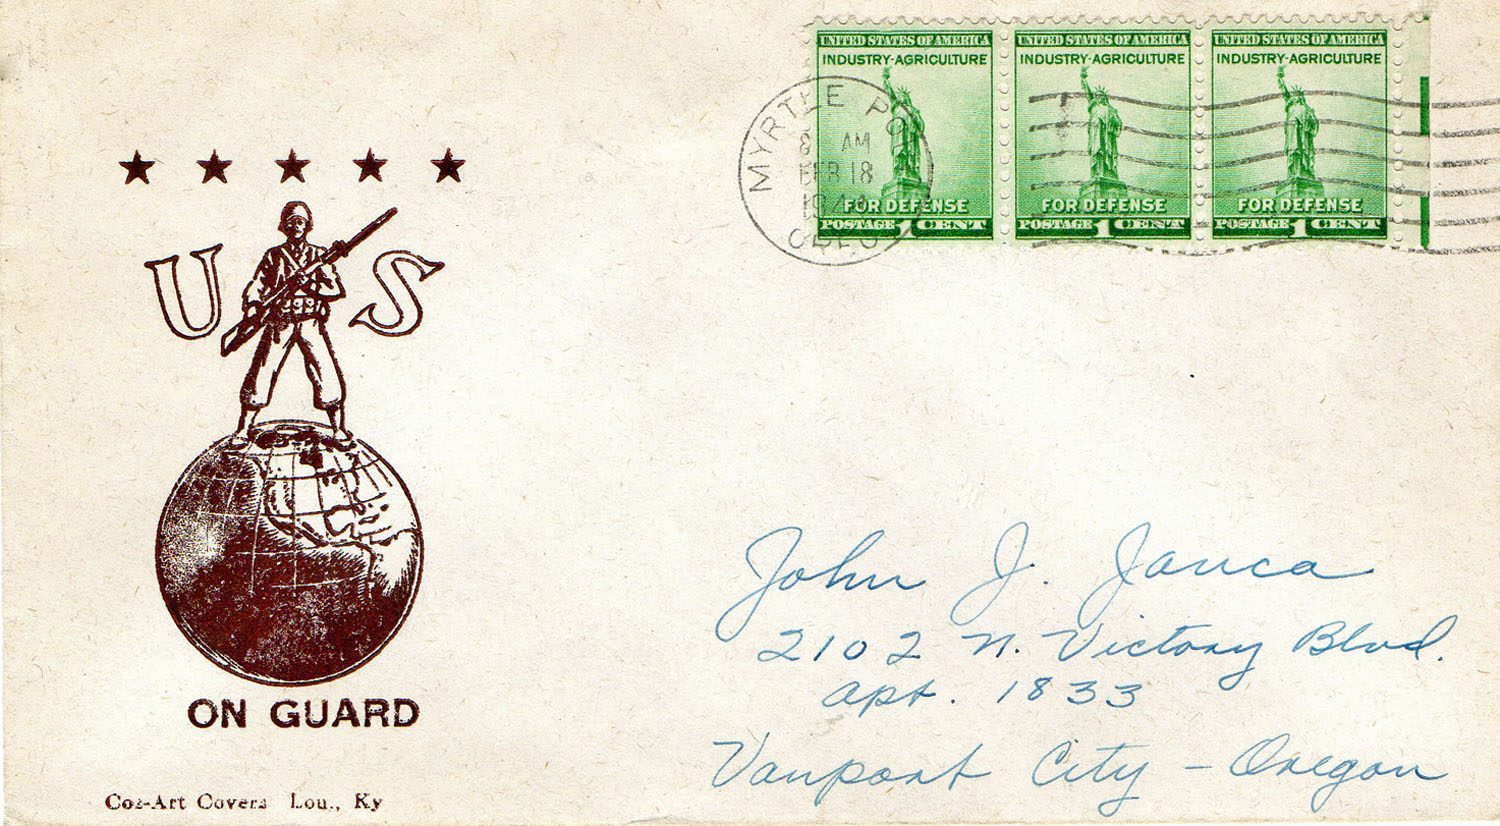 UNITED STATES OF AMERICA
INDUSTRY-AGRICULTURE
FOR DEFENSE
POSTAGE 1 CENT
UNITED STATES OF AMERICA
INDUSTRY-AGRICULTURE
FOR DEFENSE
POSTAGE 1 CENT
UNITED STATES OF AMERICA
INDUSTRY-AGRICULTURE
FOR DEFENSE
POSTAGE 1 CENT
MYRTLE PO
8 AM
FEB 18
OREG
U S
ON GUARD
Cos-Art Covers Lou., Ky
John J. Jauca
2102 N. Victory Blvd.
Apt. 1833
Vanport City - Oregon